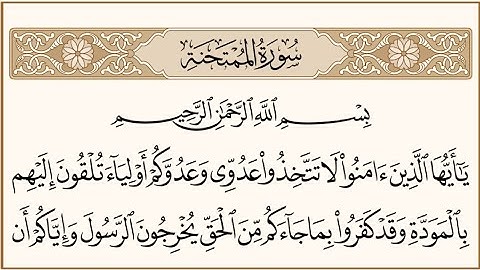 سُورَةُ الْمُمْتَحنَةِ
بِسْمِ اللَّهِ الرَّحْمَٰنِ الرَّحِيمِ
يَٰٓأَيُّهَا ٱلَّذِينَ ءَامَنُوا۟ لَا تَتَّخِذُوا۟ عَدُوِّى وَعَدُوَّكُمْ أَوْلِيَآءَ تُلْقُونَ إِلَيْهِم
بِٱلْمَوَدَّةِ وَقَدْ كَفَرُوا۟ بِمَا جَآءَكُم مِّنَ ٱلْحَقِّ يُخْرِجُونَ ٱلرَّسُولَ وَإِيَّاكُمْ أَن